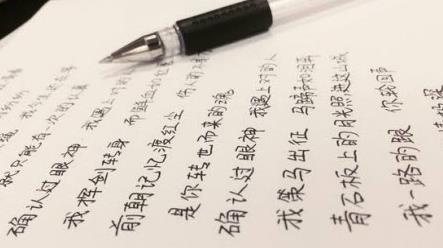 就只能有一次的认真
确认过眼神 我遇上对的
我挥剑转身 而鲜血如红
前朝记忆渡红尘 伤人的不
是你转世而来的魂
确认过眼神 我遇上对的人
我策马出征 马蹄声如泪奔
青石板上的月光照进这山城
我一路的跟 你轮回声